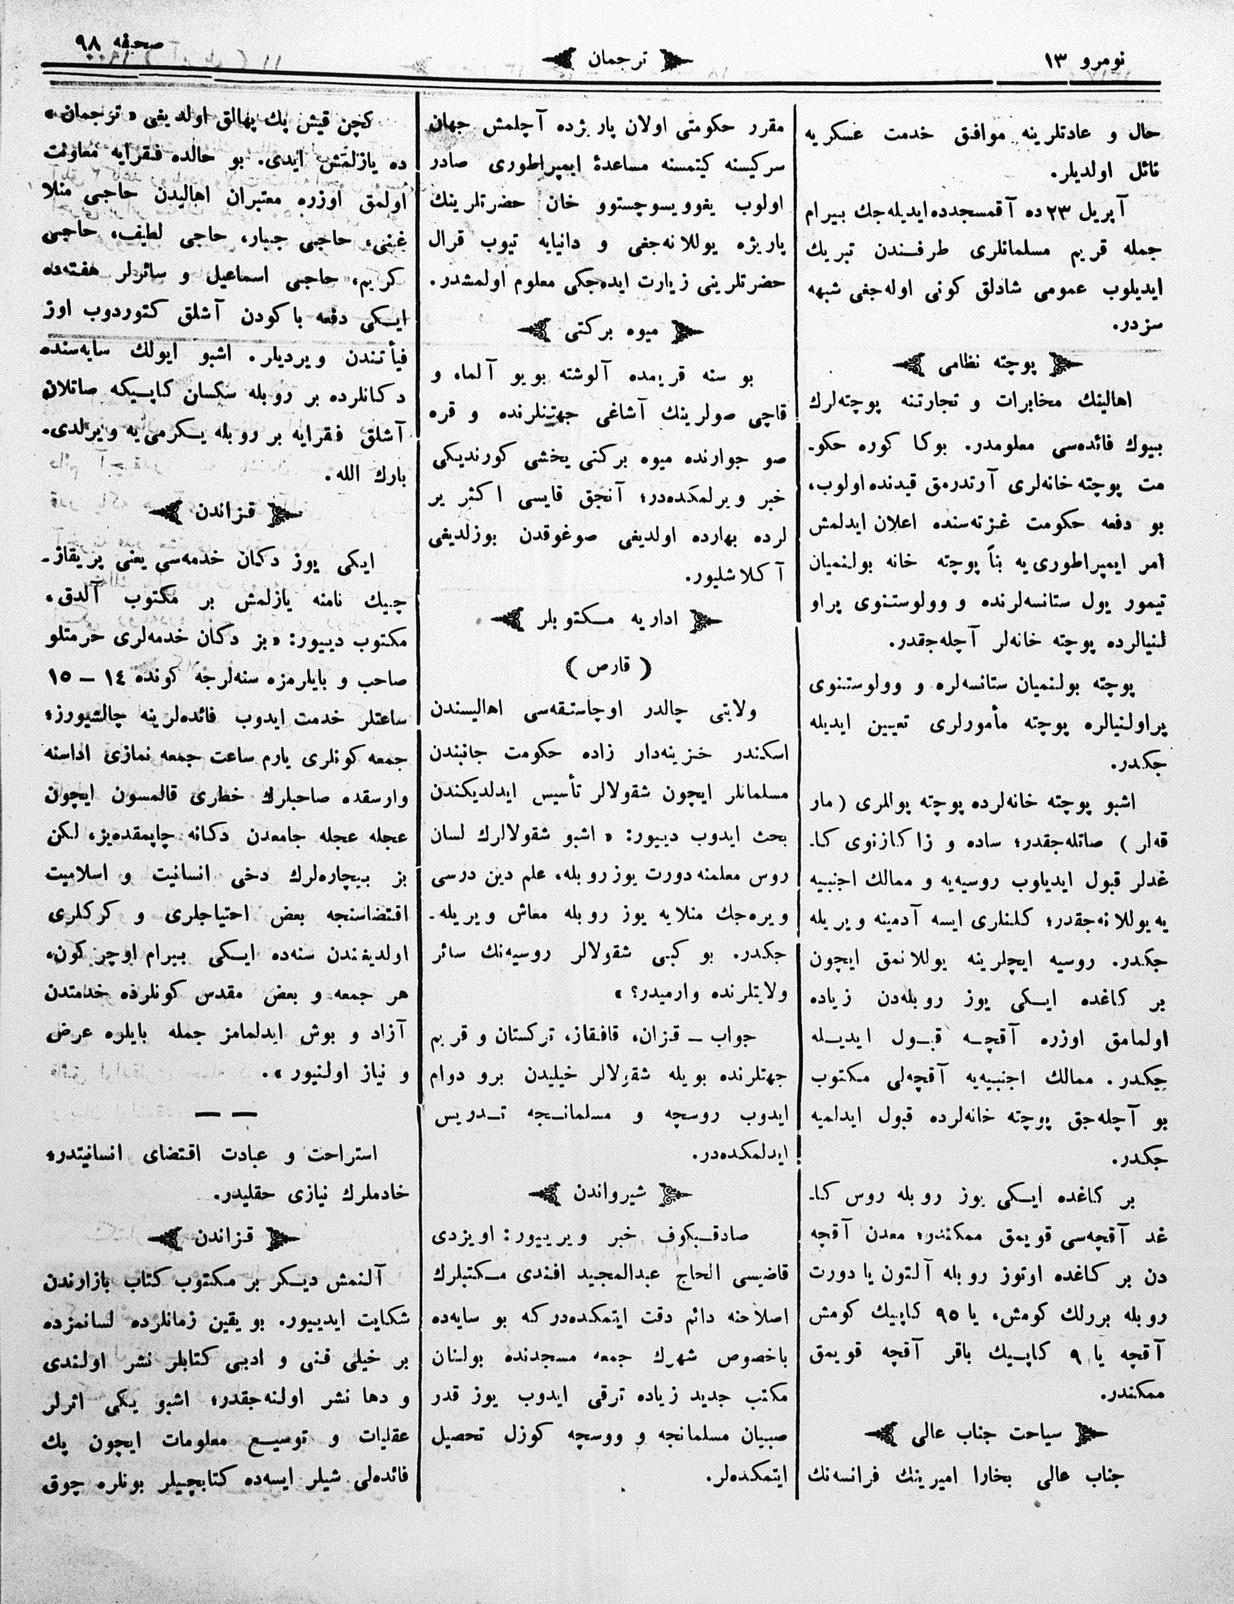 نومرو ١٣
ترجمان
صحیفه ٩٨
حال و عادتلرینه موافق خدمت عسکریه
نائل اولدیلر.
آپریل ٢٣ ده آقمسجدده ایدیله‌جك بیرام
جمله قریم مسلمانلری طرفندن تبریك
ایدیلوب عمومی شادلق کونی اوله‌جغی شبهه
سزدر.
پوچته نظامی
اهالینك مخابرات و تجارتنه پوچته‌لرك
بیوك فائده‌سی معلومدر. بوکا کوره حکو-
مت پوچته خانه‌لری آرتدرمق قیدنده اولوب،
بو دفعه حکومت غزته‌سنده اعلان ایدلمش
امر ایمپراطوری‌یه بناً پوچته خانه بولنمیان
تیمور یول ستانسه‌لرنده و وولوستنوی پراو
لنیالرده پوچته خانه‌لر آچله‌جقدر.
پوچته بولنمیان ستانسه‌لره و وولوستنوی
پراولنیالره پوچته مأمورلری تعیین ایدیله
جکدر.
اشبو پوچته خانه‌لرده پوچته پوللری (مار
قه‌لر) صاتله‌جقدر؛ ساده و زاکازنوی کا-
غدلر قبول ایدیاوب روسیه‌یه و ممالك اجنبیه
یه یوللانه‌جقدر؛ کلنلری ایسه آدمینه ویریله
جکدر. روسیه ایچلرینه یوللانمق ایچون
بر کاغده ایکی یوز روبله‌دن زیاده
اولمامق اوزره آقچه قبول ایدیله
جکدر. ممالك اجنبیه‌یه آقچه‌لی مکتوب
بو آچله‌جق پوچته خانه‌لرده قبول ایدلمیه
جکدر.
بر کاغده ایکی یوز روبله روس کا-
غد آقچه‌سی قویمق ممکندر؛ معدن آقچه
دن بر کاغده اوتوز روبله آلتون یا دورت
روبله بررلك کومش، یا ٩٥ کاپیك کومش
آقچه یا ٩ کاپیك باقر آقچه قویمق
ممکندر.
سیاحت جناب عالی
جناب عالی بخارا امیرینك فرانسه‌نك
مقرر حکومتی اولان پاریژده آچلمش جهان
سرکیسنه کیتمسنه مساعدۀ ایمپراطوری صادر
اولوب یغوویسوچستوو خان حضرتلرینك
پاریژه یوللانه‌جغی و دانیایه تیوب قرال
حضرتلرینی زیارت ایده‌جکی معلوم اولمشدر.
میوه برکتی
بو سنه قریمده آلوشته بویو آلما، و
قاچی صولرینك آشاغی جهتنلرنده و قره
صو جوارنده میوه برکتی یخشی کورندیکی
خبر ویرلمکده‌در؛ آنجق قایسی اکثر یر
لرده بهارده اولدیغی صوغوقدن بوزلدیغی
آکلاشلیور.
اداریه مکتوبلر
(قارص)
ولایتی چالدر اوچاستقه‌سی اهالیسندن
اسکندر خزینه‌دار زاده حکومت جانبندن
مسلمانلر ایچون شقولالر تأسیس ایدلدیکندن
بحث ایدوب دیبور: «اشبو شقولالرك لسان
روس معلمنه دورت یوز روبله، علم دین درسی
ویره‌جك منلایه یوز روبله معاش ویریله-
جکدر. بو کبی شقولالر روسیه‌نك سائر
ولایتلرنده وارمیدر؟»
جواب - قزان، قافقاز، ترکستان و قریم
جهتلرنده بویله شقولالر خیلیدن برو دوام
ایدوب روسچه و مسلمانجه تدریس
ایدلمکده‌در.
شیرواندن
صادقبکوف خبر ویریبور: اویزدی
قاضیسی الحاج عبدالمجید افندی مکتبلرك
اصلاحنه دائم دقت ایتمکده‌در که بو سایه‌ده
باخصوص شهرك جمعه مسجدنده بولنان
مکتب جدید زیاده ترقی ایدوب یوز قدر
صبیان مسلمانجه و ووسچه کوزل تحصیل
ایتمکده‌لر.
کچن قیش پك بهالق اولدیغی «ترجمان»
ده یازلمش ایدی. بو حالده فقرایه معاونت
اولمق اوزره معتبران اهالیدن حاجی منلا
غبنی، حاجی جبار، حاجی لطیف، حاجی
کریم، حاجی اسماعیل و سائرلر هفته‌ده
ایکی دفعه باکودن آشلق کتوردوب اوز
فیأتندن ویردیلر. اشبو ایولك سایه‌سنده
دکانلرده بر روبله سکسان کاپیکه صاتلان
آشلق فقرایه بر روبله یکرمی‌یه ویرلدی.
بارك الله.
قزاندن
ایکی یوز دکان خدمه‌سی یعنی پریقاز-
چیك نامنه یازلمش بر مکتوب آلدق،
مکتوب دیبور: «بز دکان خدمه‌لری حرمتلو
صاحب و بایلرمزه سنه‌لرجه کونده ١٤ – ١٥
ساعتلر خدمت ایدوب فائده‌لرینه چالشیورز؛
جمعه کونلری یارم ساعت جمعه نمازی اداسنه
وارسقده صاحبلرك خطری قالمسون ایچون
عجله عجله جامعدن دکانه چاپمقده‌یز، لکن
بز بیچاره‌لرك دخی انسانیت و اسلامیت
اقتضاسنجه بعض احتیاجلری و کرکلری
اولدیغندن سنه‌ده ایکی بیرام اوچر کون،
هر جمعه و بعض مقدس کونلرده خدمتدن
آزاد و بوش ایدلمامز جمله بایلره عرض
و نیاز اولنیور».
استراحت و عبادت اقتضای انسانیتدر؛
خادملرك نیازی حقلیدر.
قزاندن
آلنمش دیکر بر مکتوب کتاب بازارندن
شکایت ایدیبور. بو یقین زمانلرده لسانمزده
بر خیلی فنی و ادبی کتابلر نشر اولندی
و دها نشر اولنه‌جقدر؛ اشبو یکی اثرلر
عقلیات و توسیع معلومات ایچون پك
فائده‌لی شیلر ایسه‌ده کتابچیلر بونلره چوق